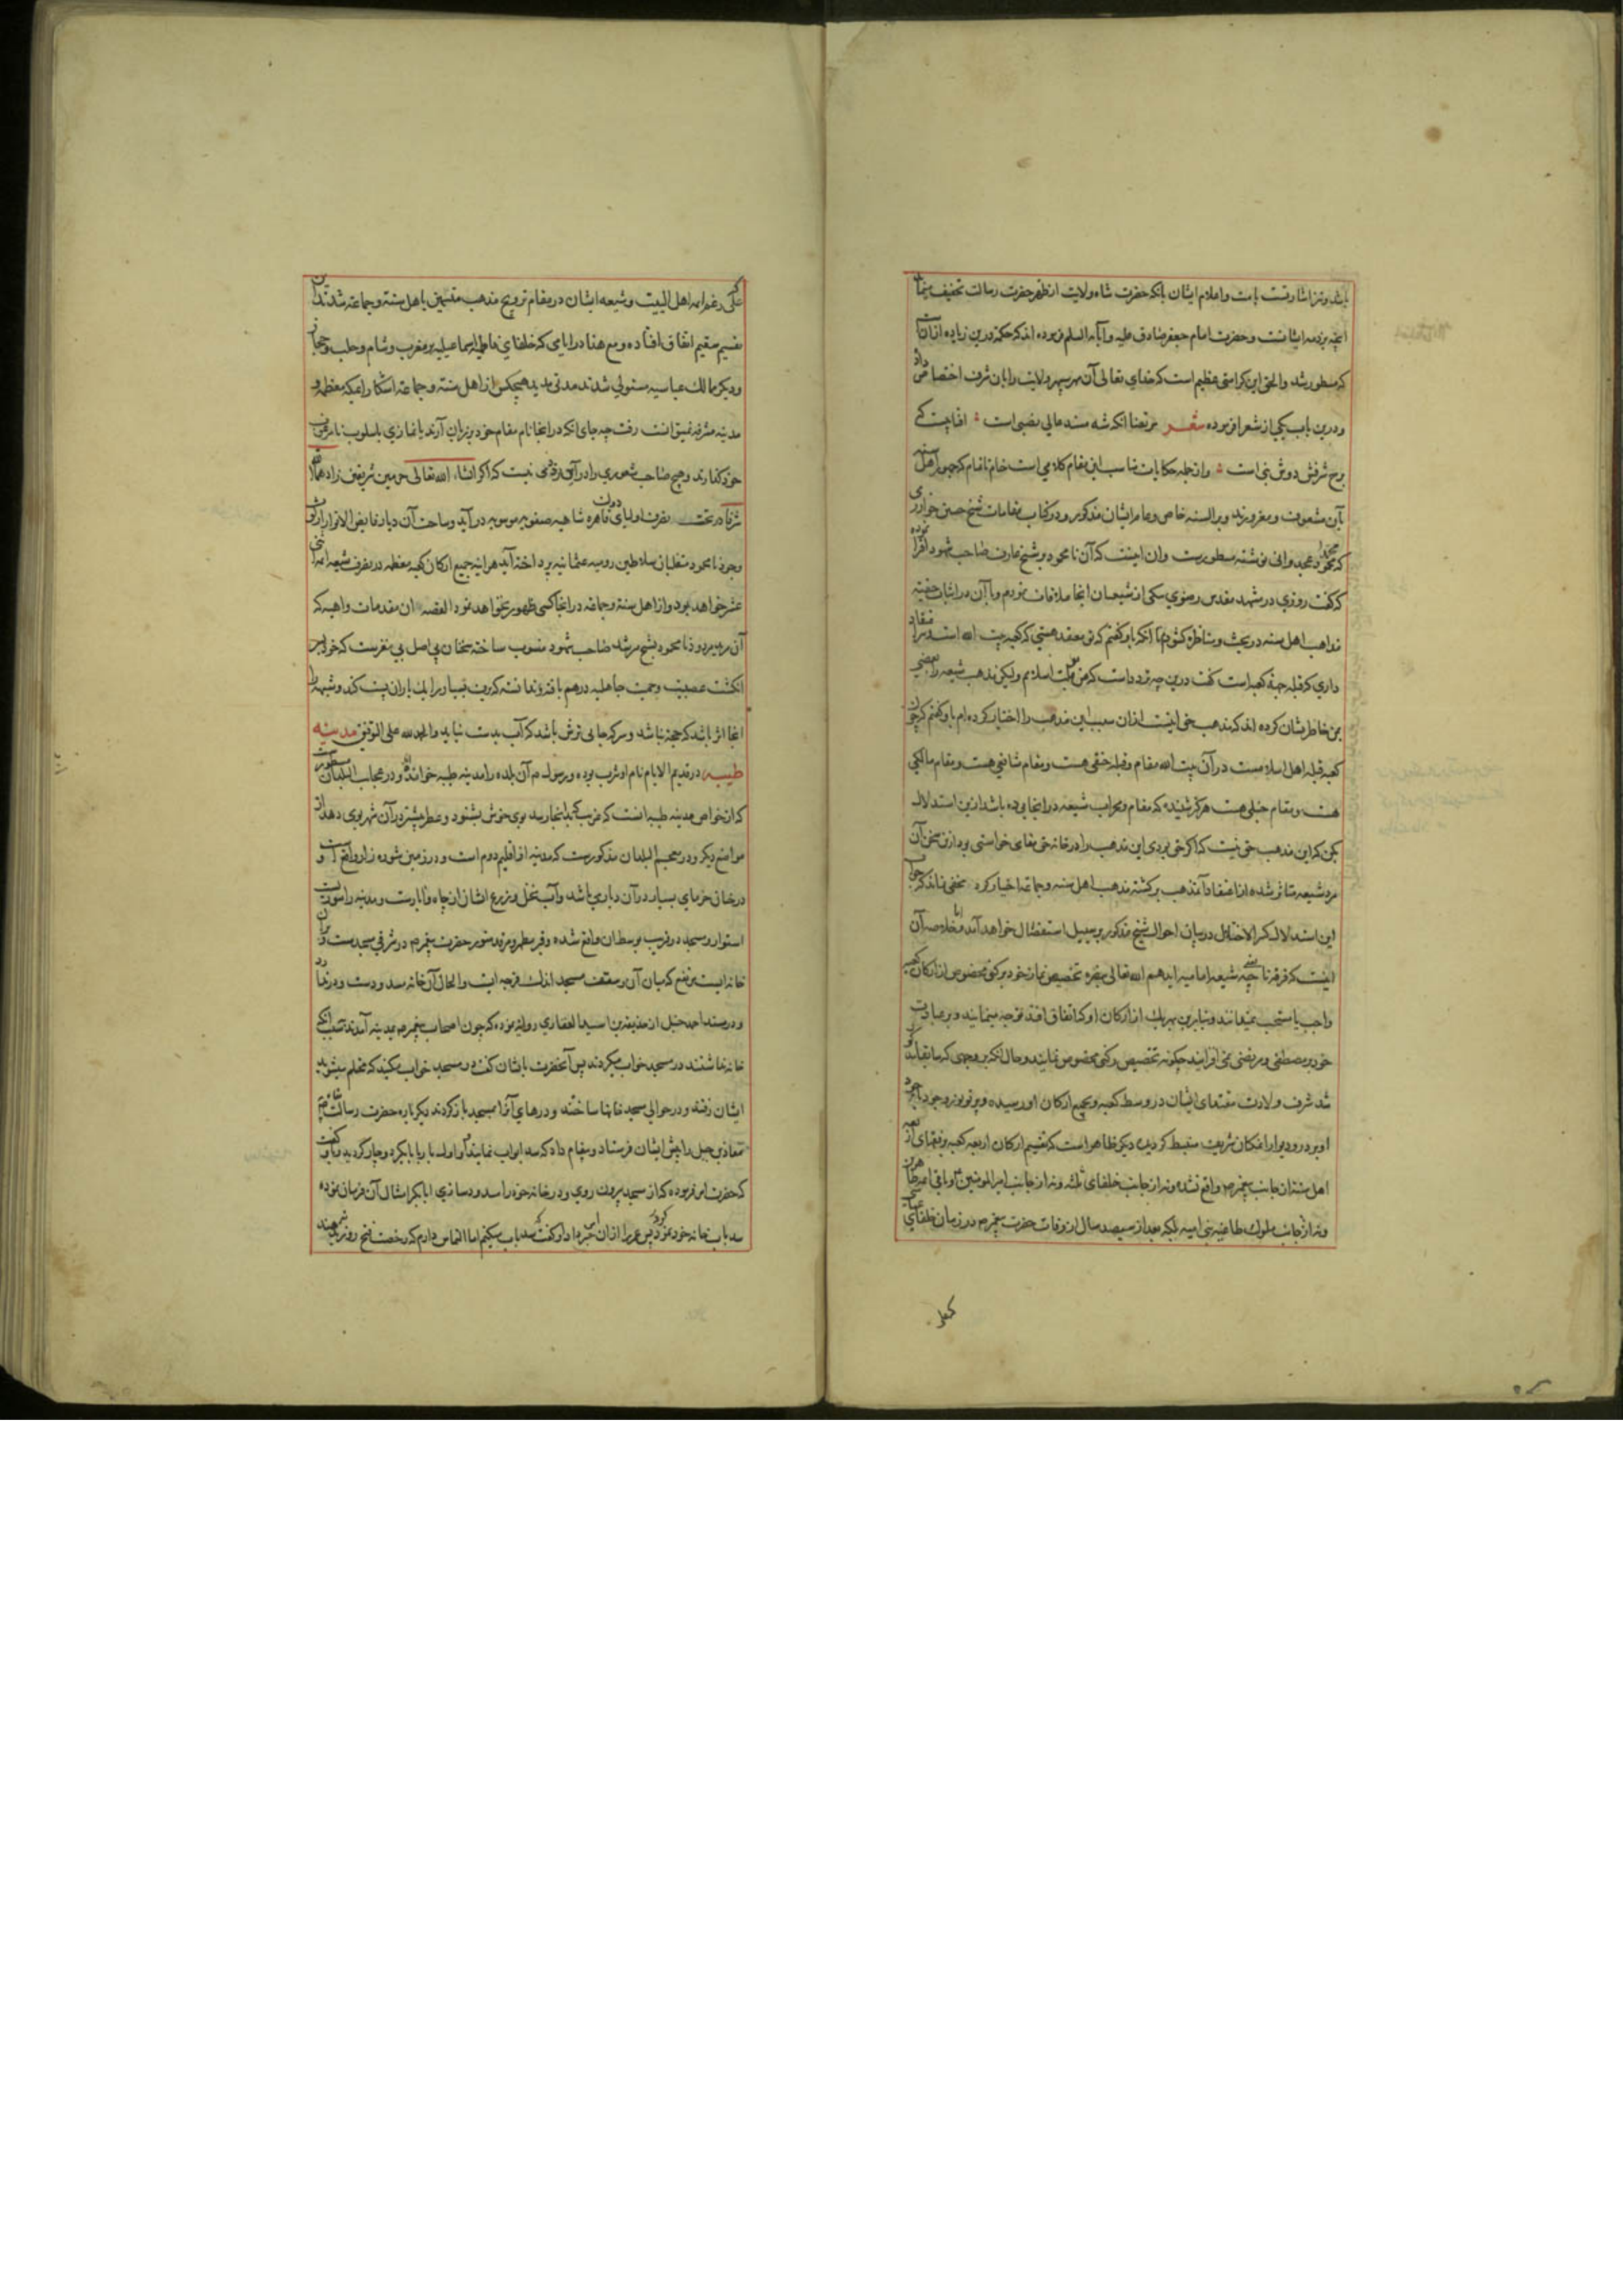 باشد و نیز اشارتست بامت و اعلام ایشان بانکه حضرت شاه ولایت از ظهر حضرت رسالت تخفیف
انچه بر ذمه ایشانست و حضرت امام جعفر صادق علیه و آبائه السلام فرموده اند که حکمة درین زیاده ازان
که مسطور شد والحق این کرامتی عظیم است که خدای تعالی آن سپهر ولایت را بان شرف اختصاص داد
و درین باب یکی از شعرا فرموده شعر مرتضا انکه شه مسند عالی نصبی است افتابیست که
برج شرفش دوش نبی است و از جمله حکایات مناسب این مقام کلامی است خام ناتمام که جمهور اهل سنه
بآن مشعوف و مغرورند و بر السنه خاص و عام ایشان مذکور و در کتاب مقامات شیخ حسین خوارزمی
که محمود غجدوانی نوشته مسطورست وان اینست که آن نامحمود بر شیخ عارف صاحب شهود افترا نموده
که گفت روزی در مشهد مقدس رضوی بیکی از شیعیان انجا ملاقات نمودم و با آن در اثبات حقیقه
مذاهب اهل سنه در بحث و مناظره کشودم تا انکه باو گفتم که تو معتقد هستی که کعبه بیت الله است
داری که قبله جهة کعبه است گفت درین چه تردد است که من ملت اسلام ولیکن مذهب شیعه را بعضی
بمن خاطرنشان کرده اند که مذهب حق اینست ازان سبب این مذهب را اختیار کرده ام باو گفتم که چون
کعبه قبله اهل اسلام است در آن بیت الله مقام و قبله حنفی هست و مقام شافعی هست و مقام مالکی
هست و مقام حنبلی هست هرگز شنیده که مقام و محراب شیعه در انجا بوده باشد ازین استدلال
بکن که این مذهب حق نیست که اگر حق بودی این مذهب را در خانه حق بقای خواستی بود ازین سخن آن
مرد شیعه متاثر شده از اعتقاد آنمذهب برگشته مذهب اهل سنه و جماعه اختیار کرد مخفی نماند که جواب
این استدلال کثیر الاختلال در بیان احوال شیخ مذکور بر سبیل استفصال خواهد آمد اما خلاصه آن
اینست که فرقه ناجیه شیعه امامیه ایدهم الله تعالی بنصره تخصیص نماز خود برکنی مخصوص از ارکان کعبه
واجب یا مستحب نمیدانند و بنابرین بهر یک از ارکان او که اتفاق افتد توجه مینمایند و در عبادت
خود بر مصطفی و مرتضی نمی افزایند چگونه تخصیص رکنی مخصوص نمایند و حال انکه بر وجهی که سابقا
شد شرف ولادت مقتدای ایشان در وسط کعبه و بجمیع ارکان او رسیده و پرتو نور وجود
او بر در و دیوار امکان شریعت منبسط گردیده دیگر ظاهر است که تقسیم ارکان اربعه کعبه بر فقهای اربعه
اهل سنه از جانب پیغمبر ص واقع نشده و نه از جانب خلفای ثلثه و نه از جانب امیرالمؤمنین و باقی ائمه
و نه از جانب ملوک طاغیه بنی امیه بلکه بعد از سیصد سال از وفات حضرت پیغمبر ص در زمان خلفای عباسی
که علی
که علی رغم ائمه اهل البیت و شیعه ایشان در مقام ترویج مذهب متسمین باهل سنه و جماعه شدند آن
تقسیم سقیم اتفاق افتاده و مع هذا در ایامی که خلفای فاطمیه اسماعیلیه بر مغرب و شام و حلب و حجاز
و دیگر ممالک عباسیه مستولی شدند مدتی مدید هیچکس از اهل سنه و جماعه اشکارا بمکه معظمه و
مدینه مشرفه نمیتوانست رفت چه جای انکه در انجا نام مقام خود بر زبان آرند یا نمازی باسلوب نامرغوب
خود گذارند و هیچ صاحب شعوری را در آن تردی نیست که اگر انشاء الله تعالی حرمین شریفین زادهما الله
شرفا در تحت تصرف اولیای دولت قاهره شاهیه صفویه موسویه در آید و ساحت آن دیار فایض الانوار از لوث
وجود نامحمود متغلبان سلاطین رومیه عثمانیه پرداخته آید هر اینه جمیع ارکان کعبه معظمه در تصرف شیعه ائمه اثنی
عشر خواهد بود و از اهل سنه و جماعه در انجا کسی ظهور نخواهد نمود القصه ان مقدمات واهیه که
آن مرید مردود نامحمود بشیخ مرشد صاحب شهود منسوب ساخته سخنان بی اصل بی مغزست که خود بسر
انگشت عصبیت و حمیت جاهلیه درهم بافته
انجا اثر باشد که حجة نباشد و سرکه جایی ترش باشد که آب بدست نیاید والحمد لله علی التوفیق مدینه
طیبه در قدیم الایام نام او یثرب بوده و رسول ص آن بلده را مدینه طیبه خوانده و در عجایب البلدان مسطورست
که از خواص مدینه طیبه انست که غریب که بانجا رسد بوی خوش بشنود و عطر بیشتر در آن شهر بوی دهد از
مواضع دیگر و در معجم البلدان مذکورست که مدینه از اقلیم دوم است و در زمین شوره زار واقع است و
درختان خرمای بسیار در آن دیار می باشد و آب نخل و زرع ایشان از چاه و آبارست و مدینه را سوریست
استوار و مسجد در قریب بوسط ان واقع شده و قبر مطهر و مرقد منور حضرت پیغمبر ص در شرقی مسجدست و آن
خانه ایست مرتفع که میان آن و سقف مسجد اندک فرجه ایست والحال آن خانه مسدودست و در ندارد
و در مسند احمد حنبل از حذیفه بن اسید الغفاری روایه نموده که چون اصحاب پیغمبر ص بمدینه آمدند بسبب انکه
خانه نداشتند در مسجد خواب میکردند پس آنحضرت بایشان گفت در مسجد خواب مکنید که محتلم میشوید
ایشان رفتند و در حوالی مسجد خانها ساختند و درهای آنرا بمسجد باز کردند دیگر باره حضرت رسالت
معاذ بن جبل را پیش ایشان فرستاد و پیغام داد که سد ابواب نمایند و او اول با ابابکر دچار گردید و باو گفت
که حضرت امر فرموده که از مسجد بیرون روی و در خانه خود را مسدود سازی ابابکر امتثال آن فرمان نموده
سد باب خانه خود کرد پس عمر را ازان خبر داد او گفت سد باب میکنم اما التماس دارم که رخصت فتح روزنه دهند